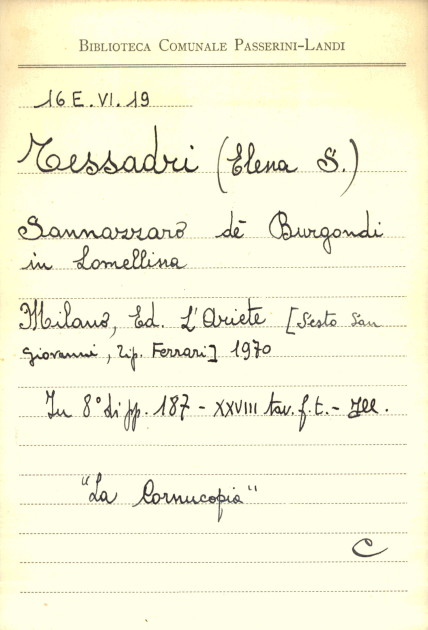 BIBLIOTECA COMUNALE PASSERINI-LANDI
16 E. VI. 19
Tessadri (Elena S.)
Sannazzaro dè Burgondi
in Lomellina
Milano, Ed. L'Ariete [Sesto San
Giovanni, Tip. Ferrari] 1970
In 8° di pp. 187 - XXVIII tav. f. t. - Ill.
"La Cornucopia"
C